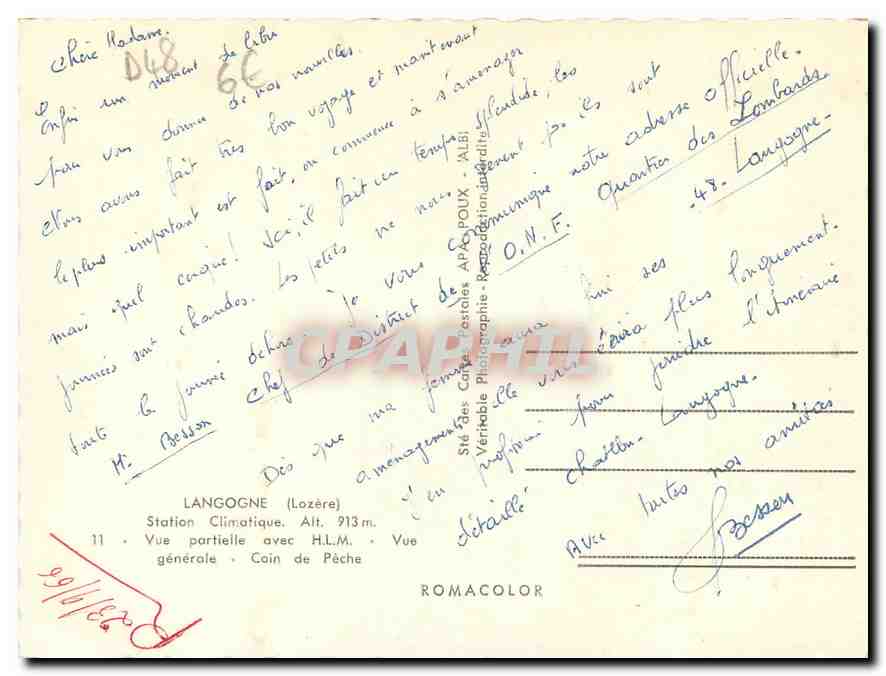 Chère Madame.
D48
6€
Enfin un moment de libre
pour vous donner de nos nouvelles.
Nous avons fait très bon voyage et maintenant
le plus important est fait, on commence à s'aménager
mais quel cirque! Ici, il fait un temps splendide, les
journées sont chaudes. Les petits ne nous gênent pas ils sont
toute la journée dehors. Je vous communique notre adresse officielle.
M. Besson Chef de District de l'O.N.F. Quartier des Lombards
.48. Langogne.
Dès que ma femme aura fini ses
aménagements elle vous écrira plus longuement.
J'en profiterai pour joindre l'itinéraire
détaillé Langogne.
Avec toutes nos amitiés
Besson
Sté des Cartes Postales APA-POUX - ALBI
Véritable Photographie - Reproduction Interdite
CPAPHIL
LANGOGNE (Lozère)
Station Climatique. Alt. 913 m.
11 - Vue partielle avec H.L.M. - Vue
générale - Coin de Pêche
ROMACOLOR
R 23/9/66